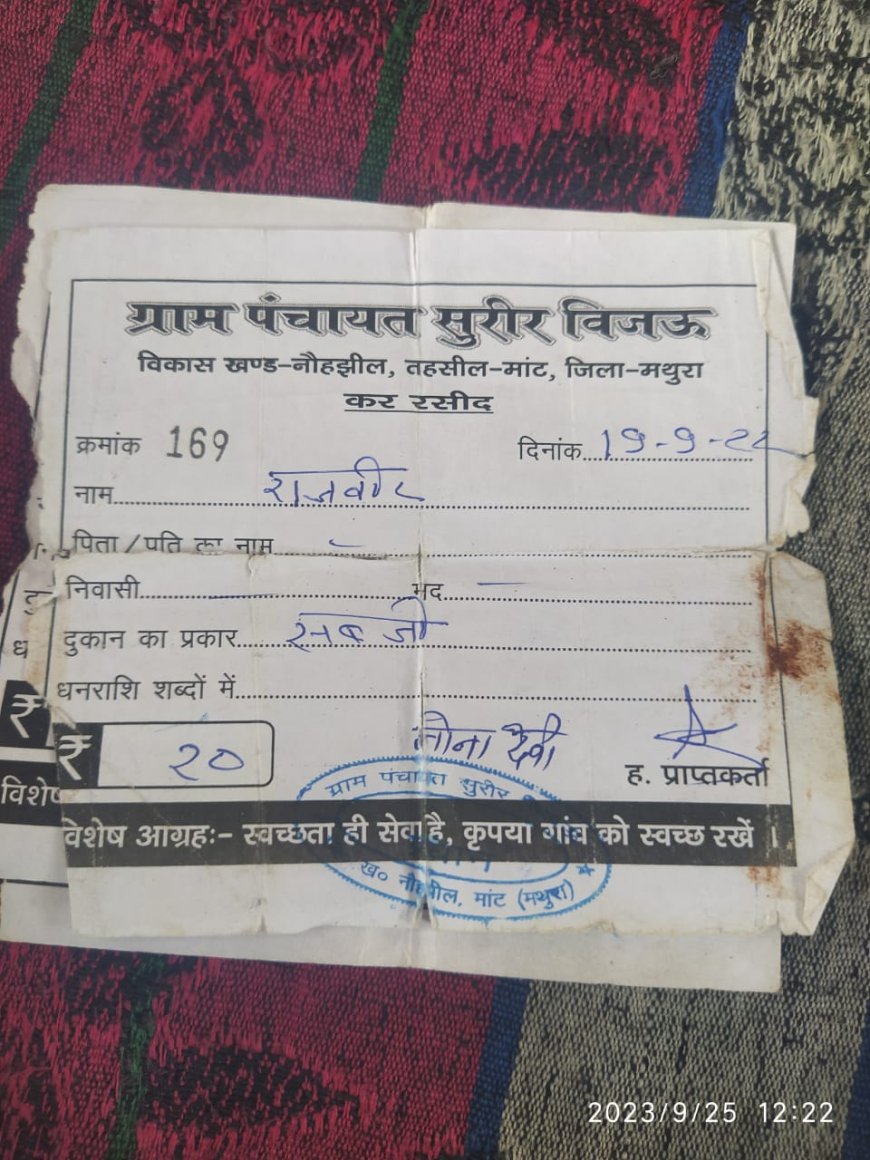 ग्राम पंचायत सुरीर विजऊ
विकास खण्ड-नौहझील, तहसील-मांट, जिला-मथुरा
कर रसीद
क्रमांक 169 दिनांक 19-9-22
नाम राजवीर
पिता/पति का नाम -
निवासी - मद -
दुकान का प्रकार सब जी
धनराशि शब्दों में
₹ २०
लीना देवी
ह. प्राप्तकर्ता
ग्राम पंचायत सुरीर
विशेष आग्रहः- स्वच्छता ही सेवा है, कृपया गांव को स्वच्छ रखें ।
ख० नौहझील, मांट (मथुरा)
₹
विशेष
2023/9/25 12:22